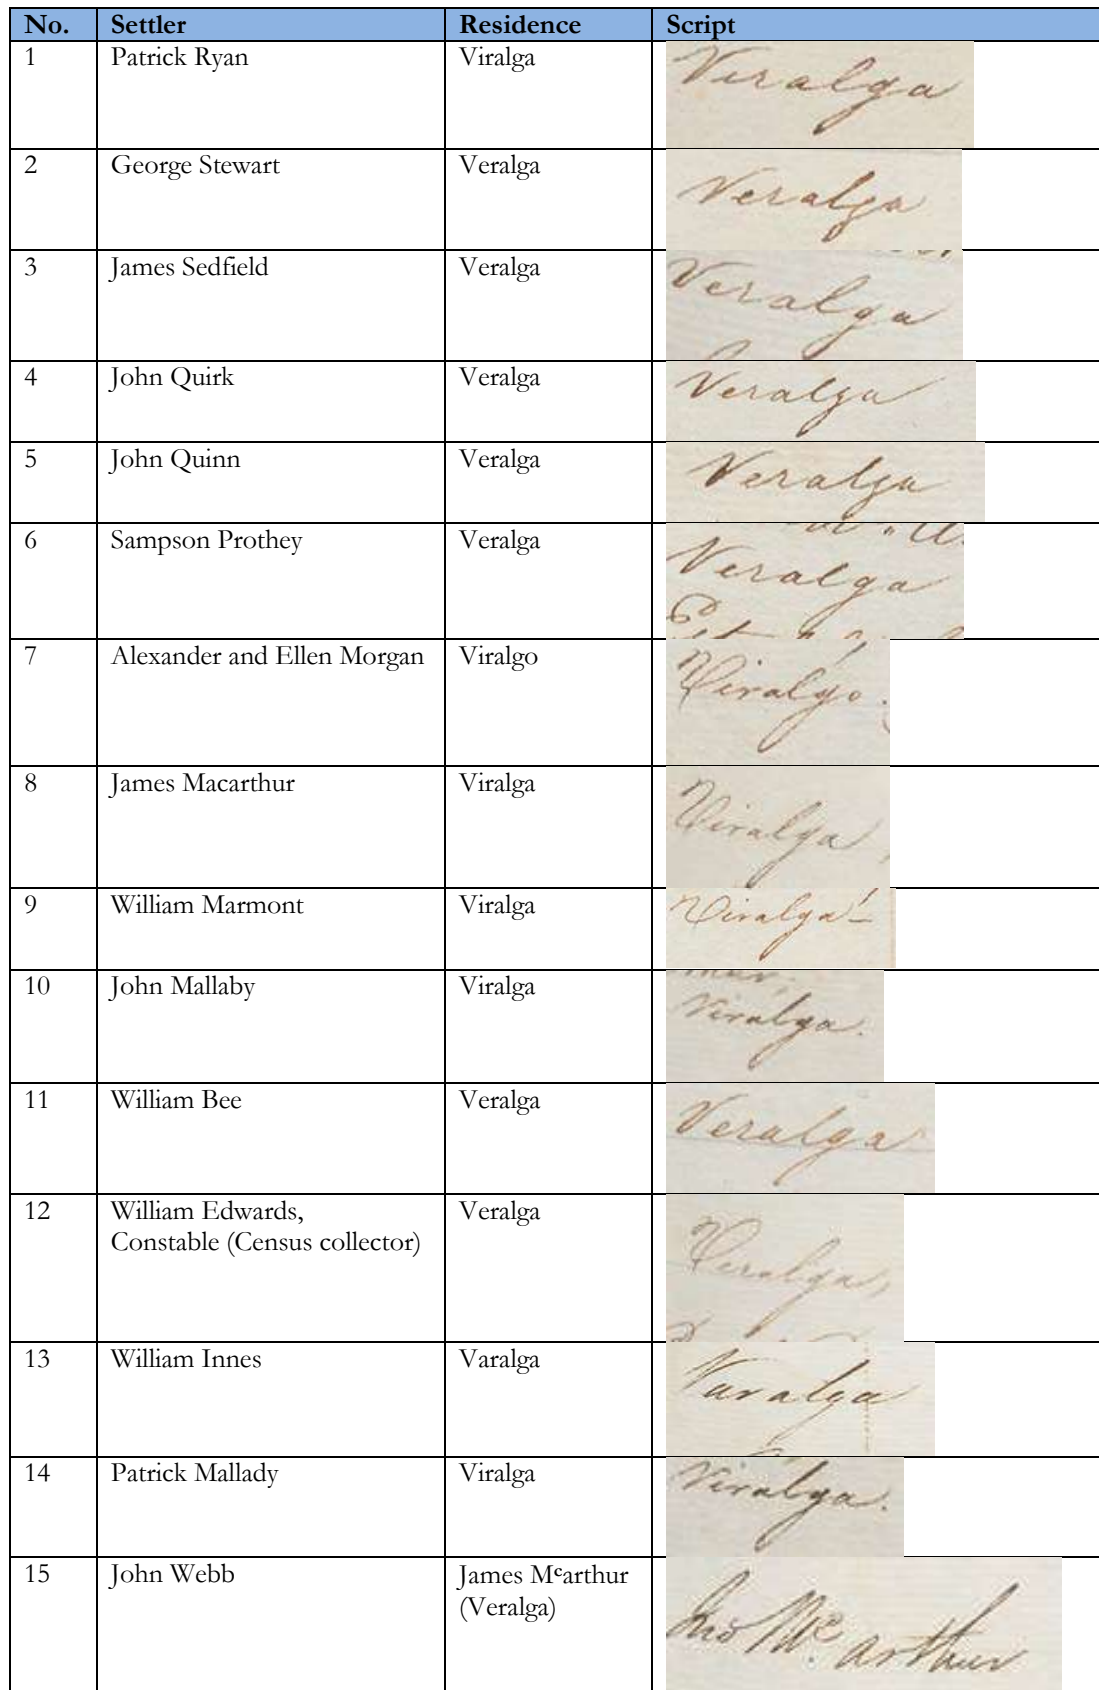 No. Settler Residence Script
1 Patrick Ryan Viralga Viralga
2 George Stewart Veralga Veralga
3 James Sedfield Veralga Veralga
4 John Quirk Veralga Veralga
5 John Quinn Veralga Veralga
6 Sampson Prothey Veralga Veralga
7 Alexander and Ellen Morgan Viralgo Viralgo.
8 James Macarthur Viralga Viralga,
9 William Marmont Viralga Viralga
10 John Mallaby Viralga Viralga.
11 William Bee Veralga Veralga
12 William Edwards, Veralga Veralga,
Constable (Census collector)
13 William Innes Varalga Varalga
14 Patrick Mallady Viralga Viralga.
15 John Webb James Mᶜarthur
(Veralga) Jno Mᶜ. arthur